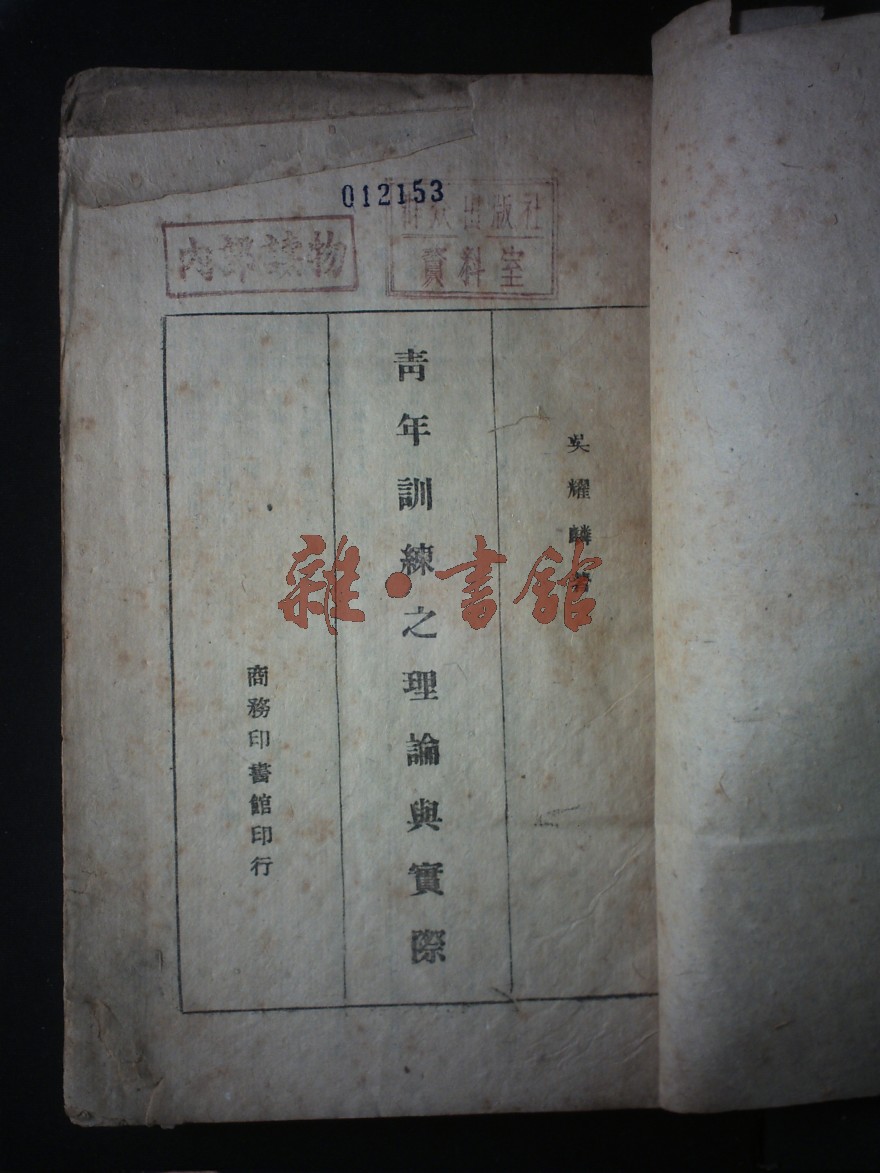 012153
內部讀物
群众出版社
資料室
吳耀麟著
青年訓練之理論與實際
商務印書館印行
雜·書館